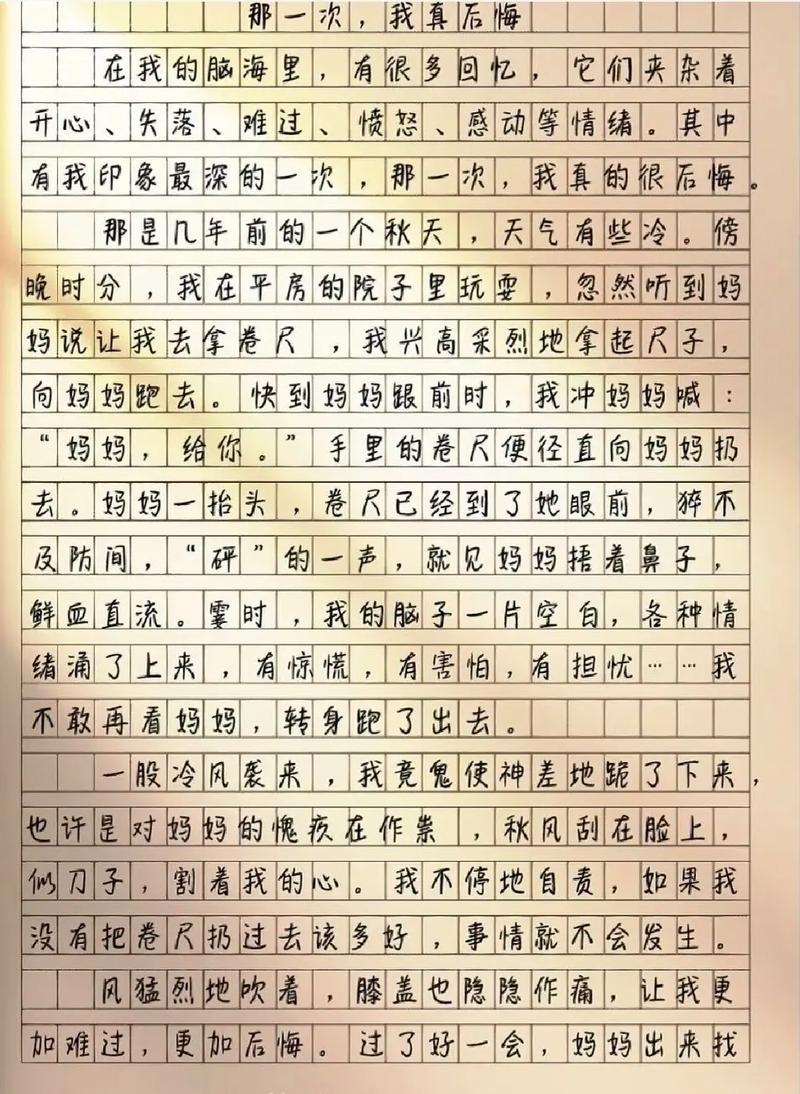 那一次，我真后悔
在我的脑海里，有很多回忆，它们夹杂着
开心、失落、难过、愤怒、感动等情绪。其中
有我印象最深的一次，那一次，我真的很后悔。
那是几年前的一个秋天，天气有些冷。傍
晚时分，我在平房的院子里玩耍，忽然听到妈
妈说让我去拿卷尺，我兴高采烈地拿起尺子，
向妈妈跑去。快到妈妈跟前时，我冲妈妈喊：
“妈妈，给你。”手里的卷尺便径直向妈妈扔
去。妈妈一抬头，卷尺已经到了她眼前，猝不
及防间，“砰”的一声，就见妈妈捂着鼻子，
鲜血直流。霎时，我的脑子一片空白，各种情
绪涌了上来，有惊慌，有害怕，有担忧……我
不敢再看妈妈，转身跑了出去。
一股冷风袭来，我竟鬼使神差地跪了下来，
也许是对妈妈的愧疚在作祟，秋风刮在脸上，
似刀子，割着我的心。我不停地自责，如果我
没有把卷尺扔过去该多好，事情就不会发生。
风猛烈地吹着，膝盖也隐隐作痛，让我更
加难过，更加后悔。过了好一会，妈妈出来找